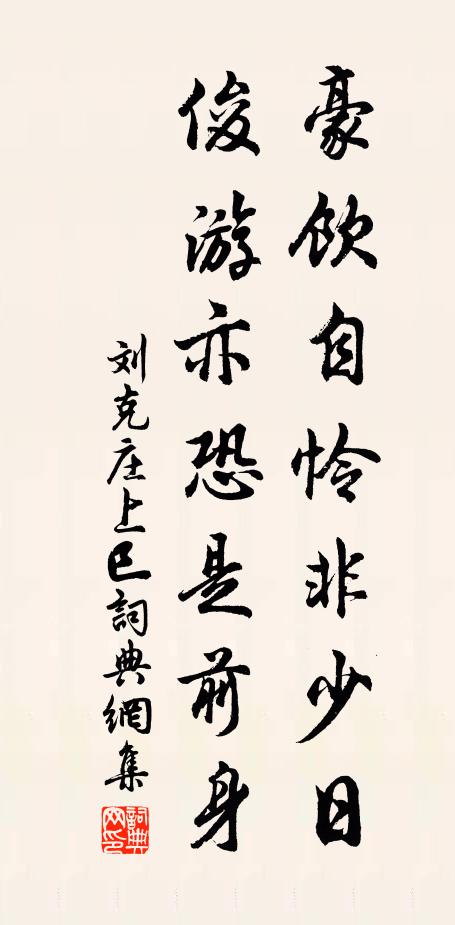 豪飲自怜非少日
俊游亦恐是前身
刘克庄上巳詞典網集
詞典網印